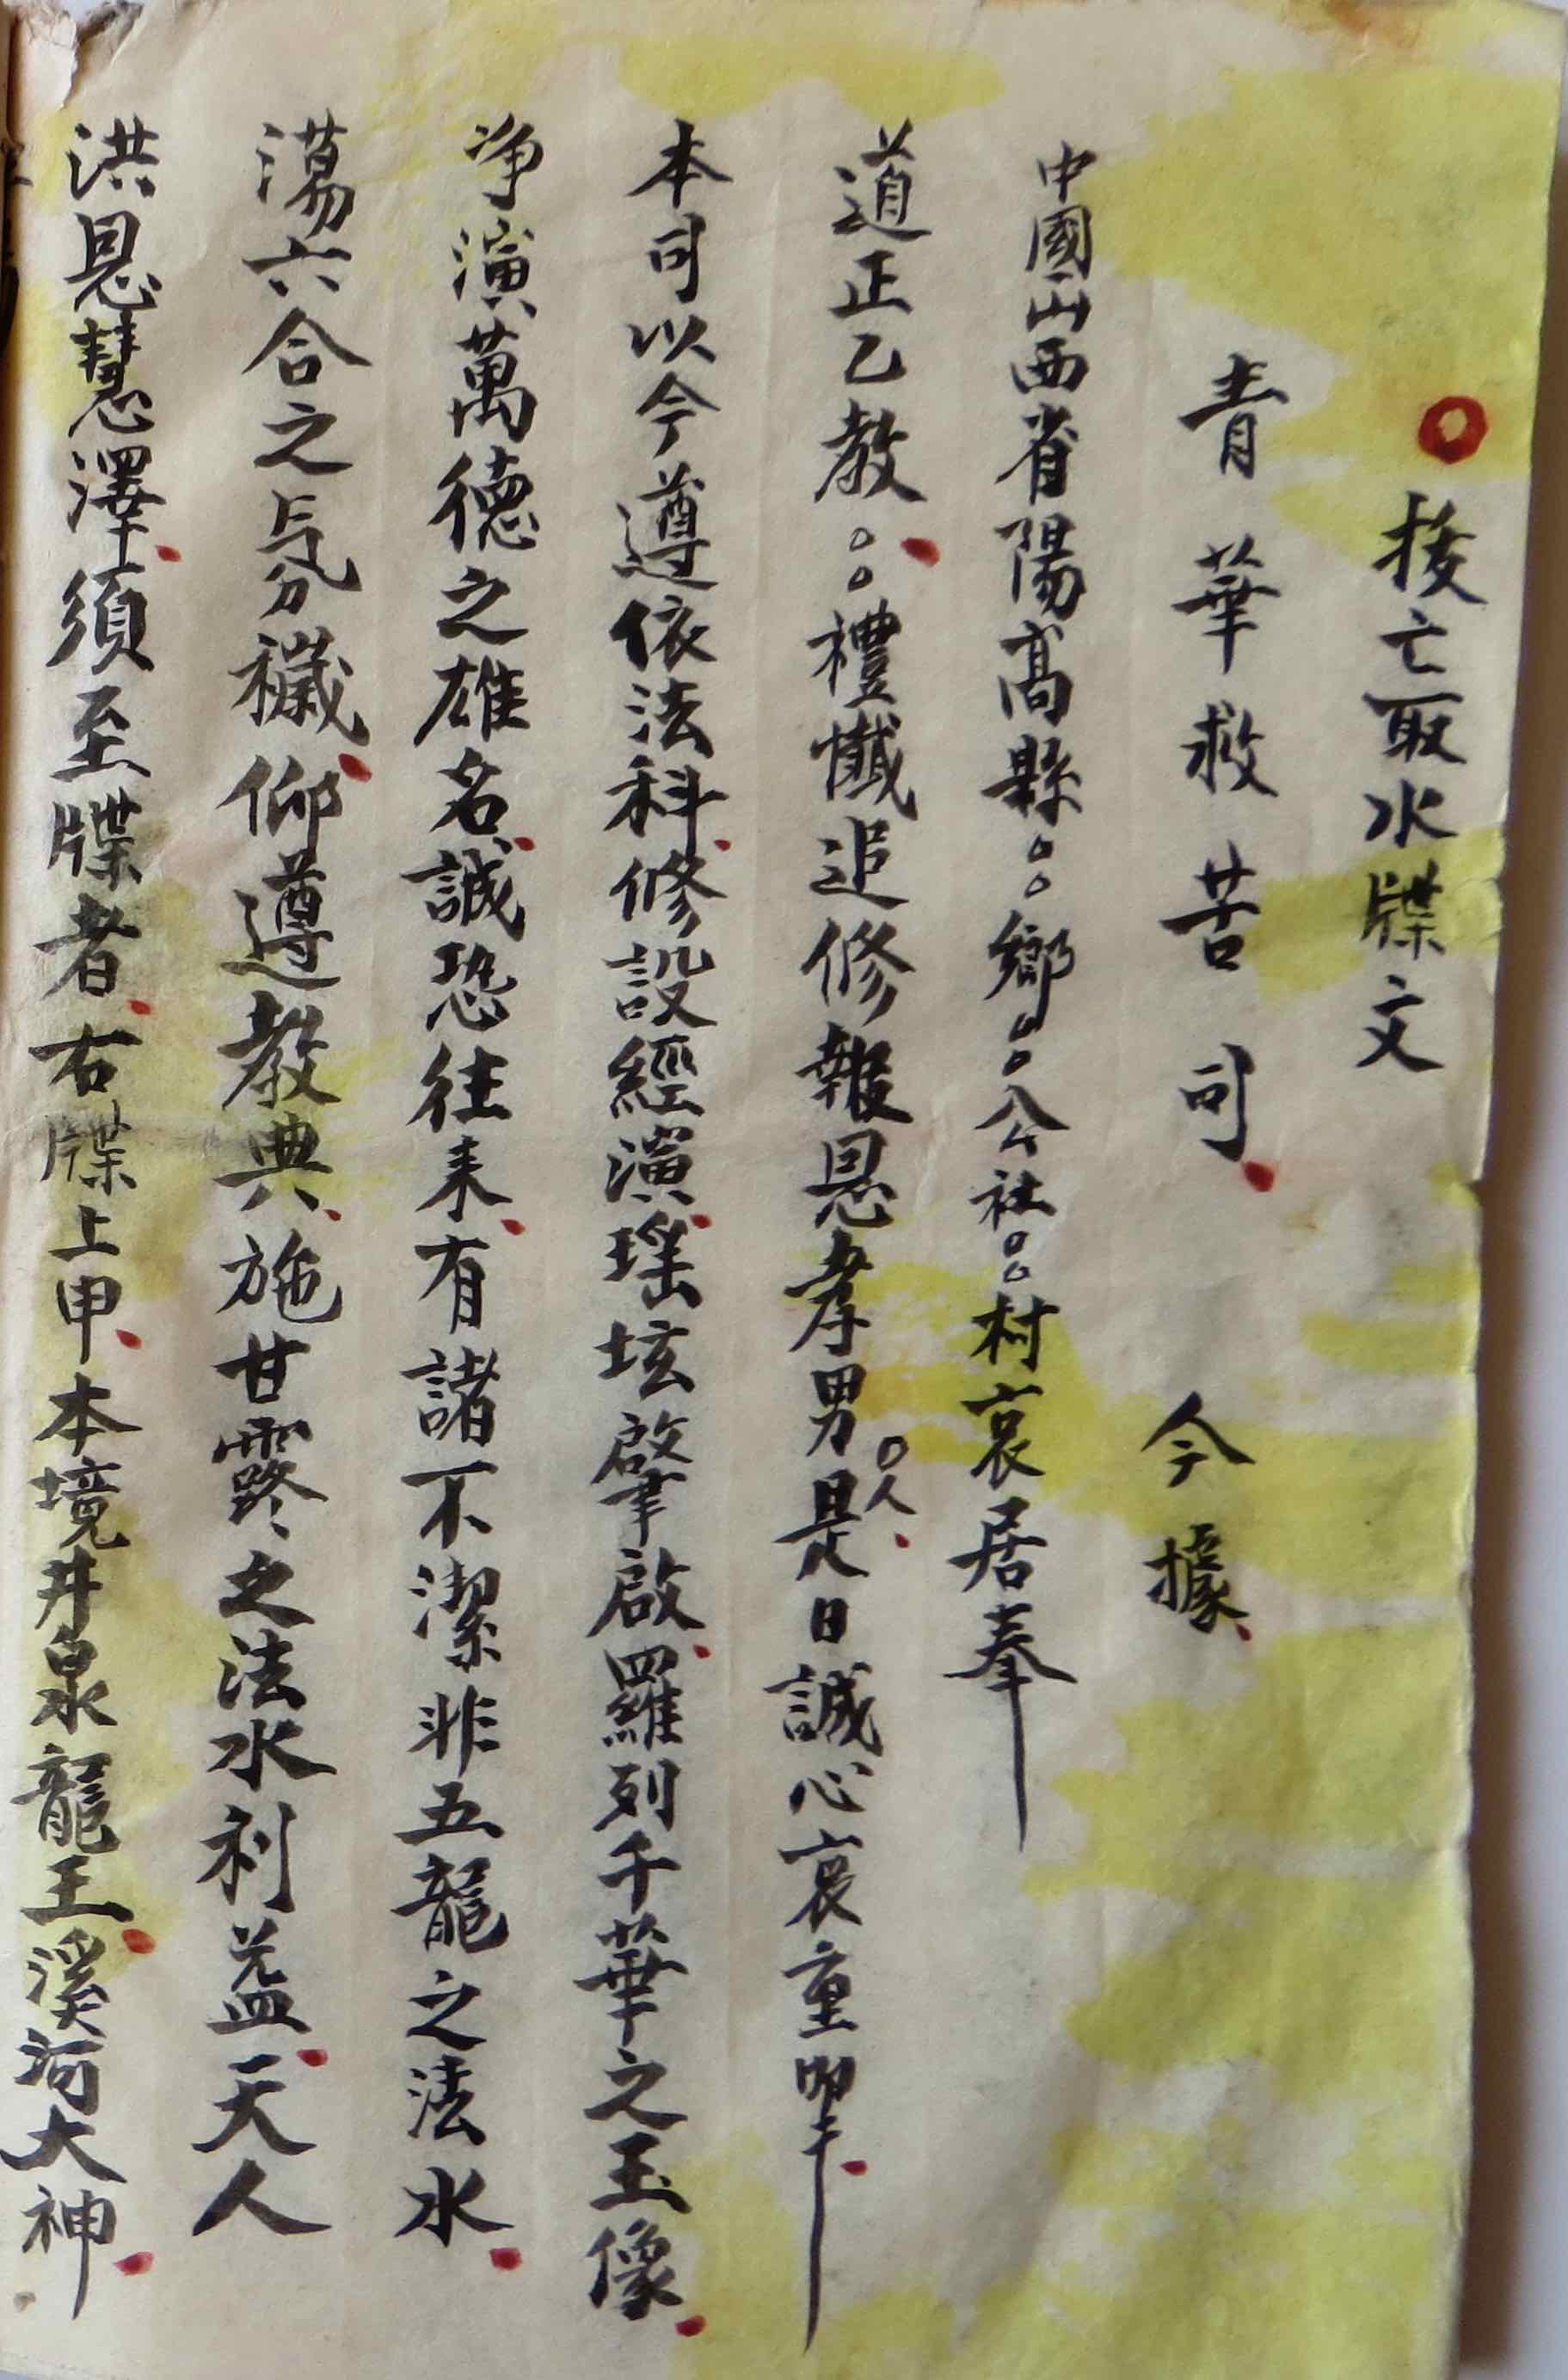 接亡取水牒文
青華救苦司 今據
中國山西省陽高縣。。鄉。。公社。。村哀居奉
道正乙教。。禮懺追修報恩孝男。人是日誠心哀
本司以今遵依法科修設經演瑤壇肇啟羅列千華之玉像
净演萬德之雄名誠恐往來有諸不潔非五龍之法水
蕩六合之氛穢仰遵教典施甘露之法水利益天人
洪恩慧澤須至牒者右牒上申本境井泉龍王溪河大神